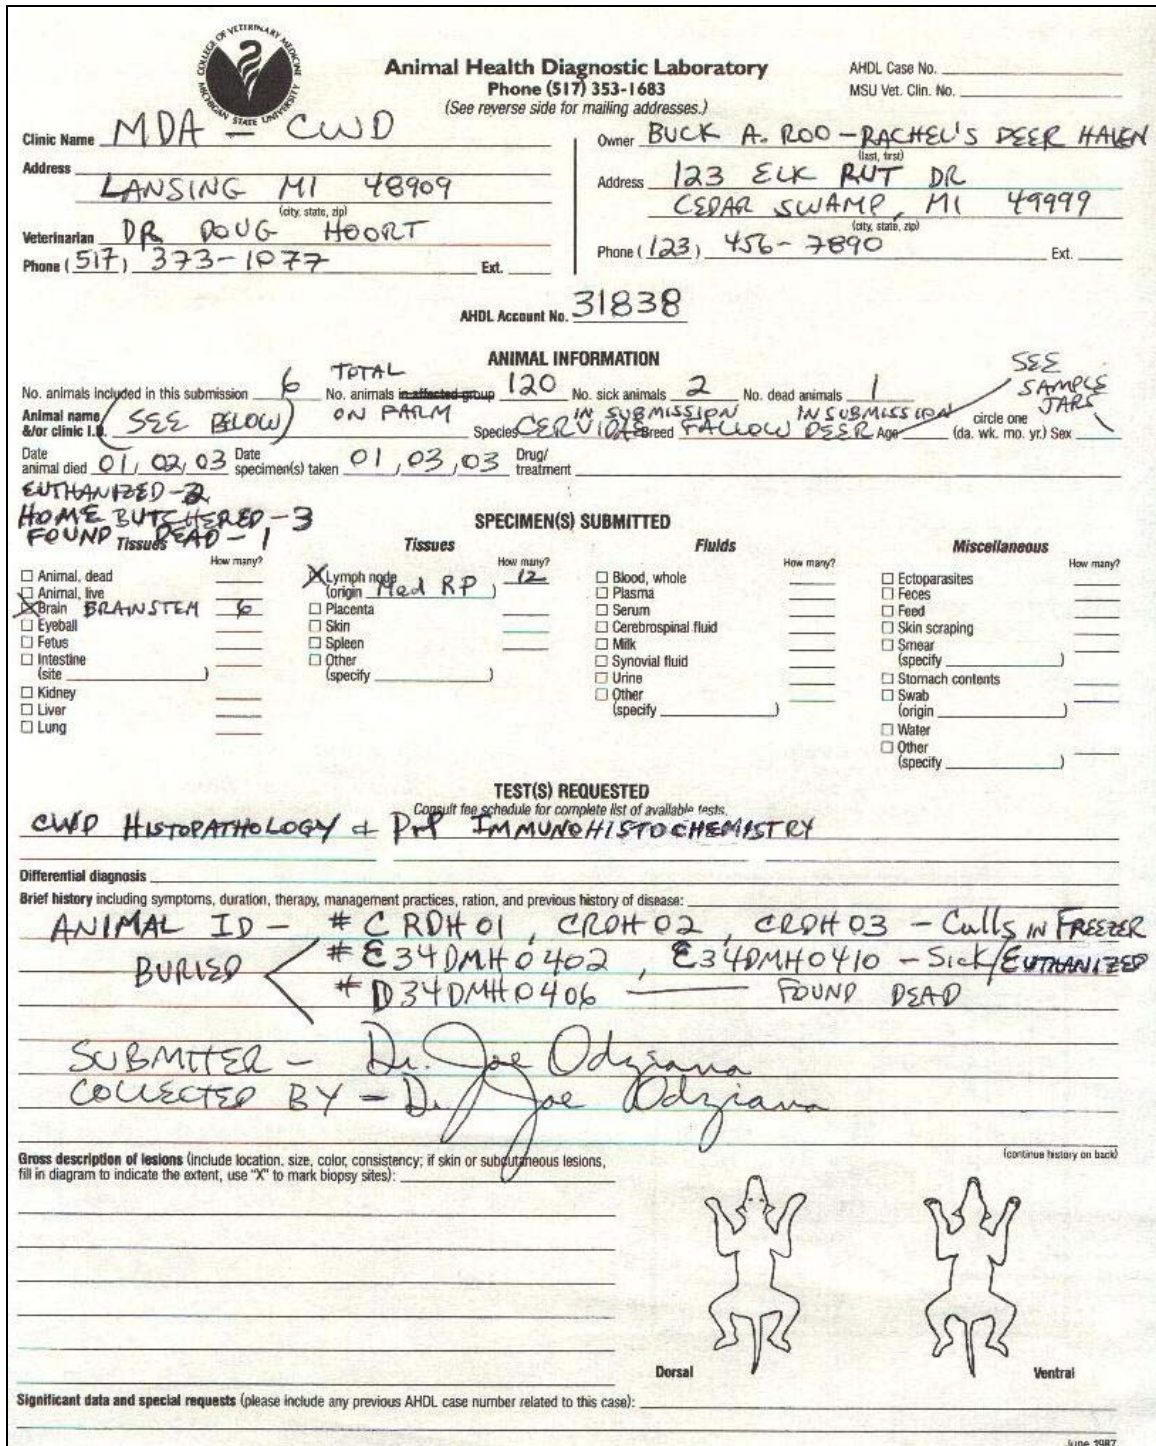 COLLEGE OF VETERINARY MEDICINE
MICHIGAN STATE UNIVERSITY
Animal Health Diagnostic Laboratory
Phone (517) 353-1683
(See reverse side for mailing addresses.)
AHDL Case No.
MSU Vet. Clin. No.
Clinic Name MDA - CWD
Owner BUCK A. ROO - RACHEL'S DEER HAVEN
(last, first)
Address
LANSING MI 48909
(city, state, zip)
Address 123 ELK RUT DR
CEDAR SWAMP, MI 49999
(city, state, zip)
Veterinarian DR DOUG HOORT
Phone (517) 373-1077 Ext.
Phone (123) 456-7890 Ext.
AHDL Account No. 31838
ANIMAL INFORMATION
SEE SAMPLE JARS
No. animals included in this submission 6 No. animals in affected group TOTAL ON FARM 120 No. sick animals 2 IN SUBMISSION No. dead animals 1 IN SUBMISSION
Animal name &/or clinic I.D. (SEE BELOW) Species CERVIDAE Breed FALLOW DEER Age circle one (da. wk. mo. yr.) Sex
Date animal died 01/02/03 Date specimen(s) taken 01/03/03 Drug/treatment
EUTHANIZED-2
HOME BUTCHERED-3
FOUND DEAD-1
SPECIMEN(S) SUBMITTED
Tissues How many?
Animal, dead
Animal, live
Brain BRAINSTEM 6
Eyeball
Fetus
Intestine
(site )
Kidney
Liver
Lung
Tissues How many?
Lymph node 12
(origin Med RP )
Placenta
Skin
Spleen
Other
(specify )
Fluids How many?
Blood, whole
Plasma
Serum
Cerebrospinal fluid
Milk
Synovial fluid
Urine
Other
(specify )
Miscellaneous How many?
Ectoparasites
Feces
Feed
Skin scraping
Smear
(specify )
Stomach contents
Swab
(origin )
Water
Other
(specify )
TEST(S) REQUESTED
Consult fee schedule for complete list of available tests.
CWD HISTOPATHOLOGY & PrP IMMUNOHISTOCHEMISTRY
Differential diagnosis
Brief history including symptoms, duration, therapy, management practices, ration, and previous history of disease:
ANIMAL ID - # CRDH01, CRDH02, CRDH03 - Culls IN FREEZER
BURIED # E34DMH0402, E34DMH0410 - Sick/EUTHANIZED
# D34DMH0406 - FOUND DEAD
SUBMITTER - Dr. Joe Odziana
COLLECTED BY - Dr. Joe Odziana
(continue history on back)
Gross description of lesions (include location, size, color, consistency; if skin or subcutaneous lesions,
fill in diagram to indicate the extent, use "X" to mark biopsy sites):
Dorsal Ventral
Significant data and special requests (please include any previous AHDL case number related to this case):
June 1987